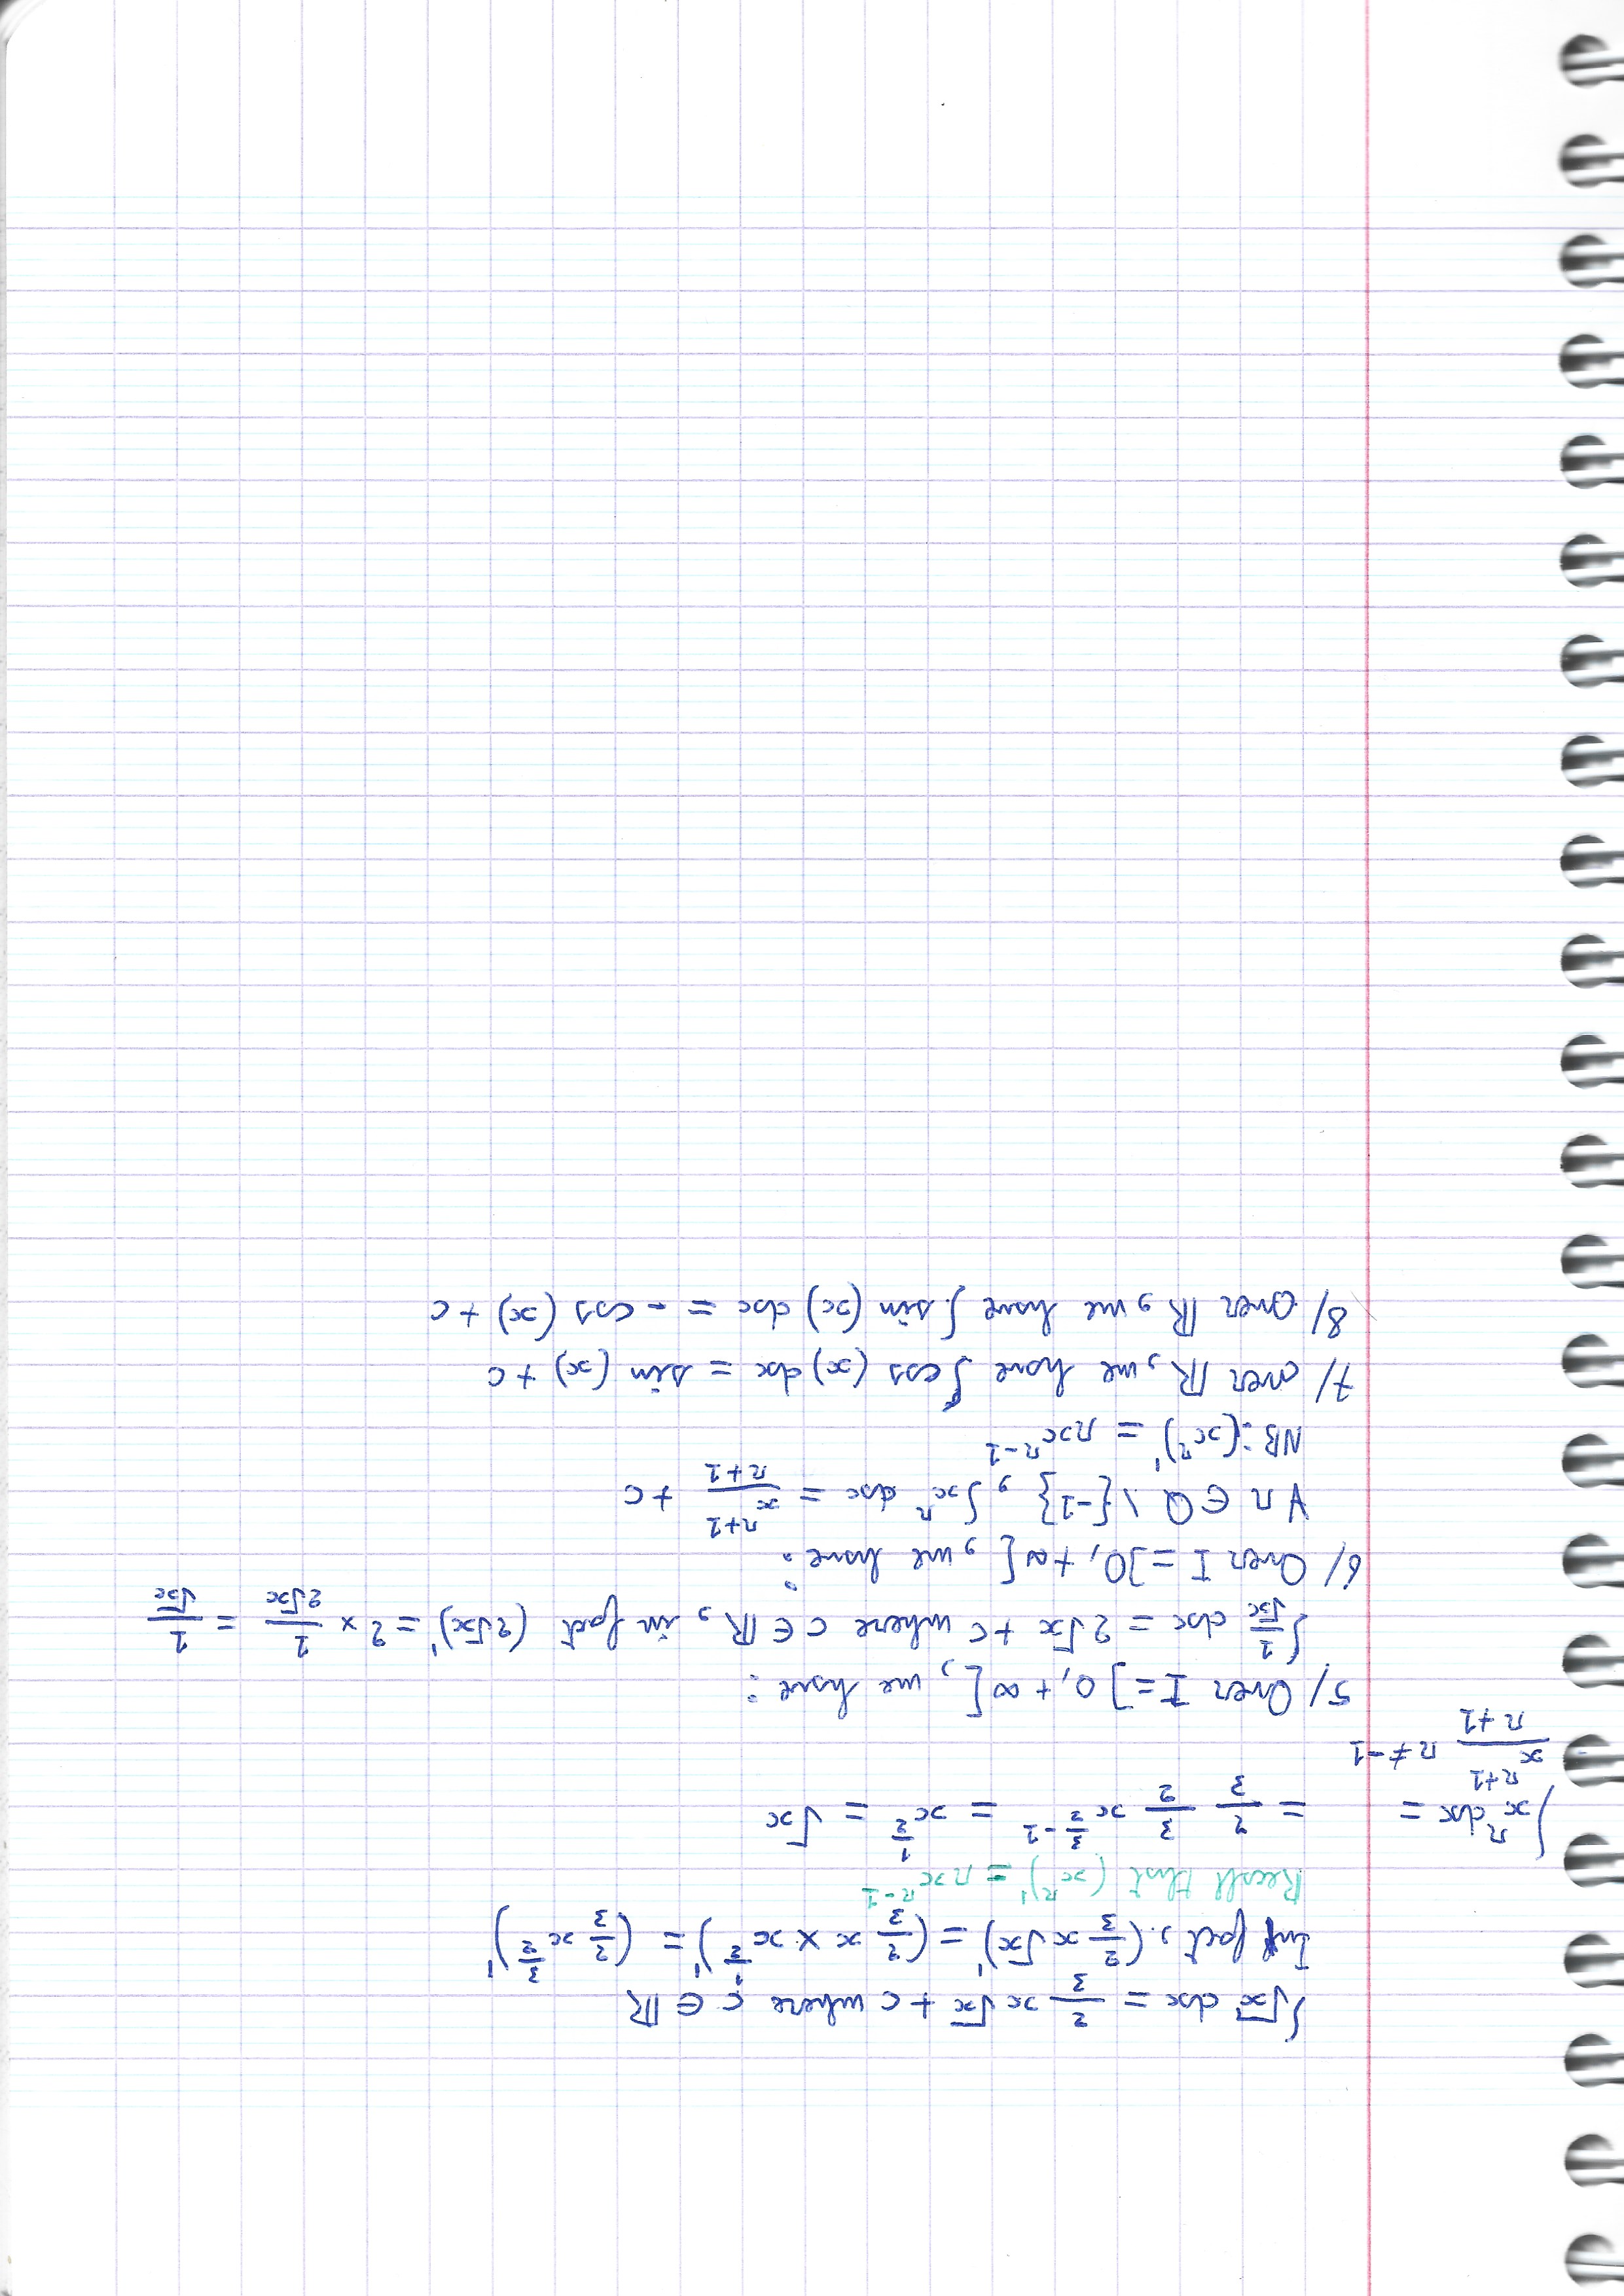 ∫√x dx = 2/3 x √x + c where c ∈ ℝ
In fact, (2/3 x √x)' = (2/3 x × x^(1/2))' = (2/3 x^(3/2))'
Recall that (x^r)' = r x^(r-1)
= 2/3 3/2 x^(3/2 - 1) = x^(1/2) = √x
∫ x^r dx =
x^(r+1)/(r+1) r ≠ -1
5/ Over I = ]0, +∞[, we have :
∫ 1/√x dx = 2√x + c where c ∈ ℝ, in fact (2√x)' = 2 × 1/(2√x) = 1/√x
6/ Over I = ]0, +∞[, we have :
∀ r ∈ Q \ {-1}, ∫ x^r dx = x^(r+1)/(r+1) + c
NB : (x^r)' = r x^(r-1)
7/ over ℝ, we have ∫ cos (x) dx = sin (x) + c
8/ over ℝ, we have ∫ sin (x) dx = - cos (x) + c